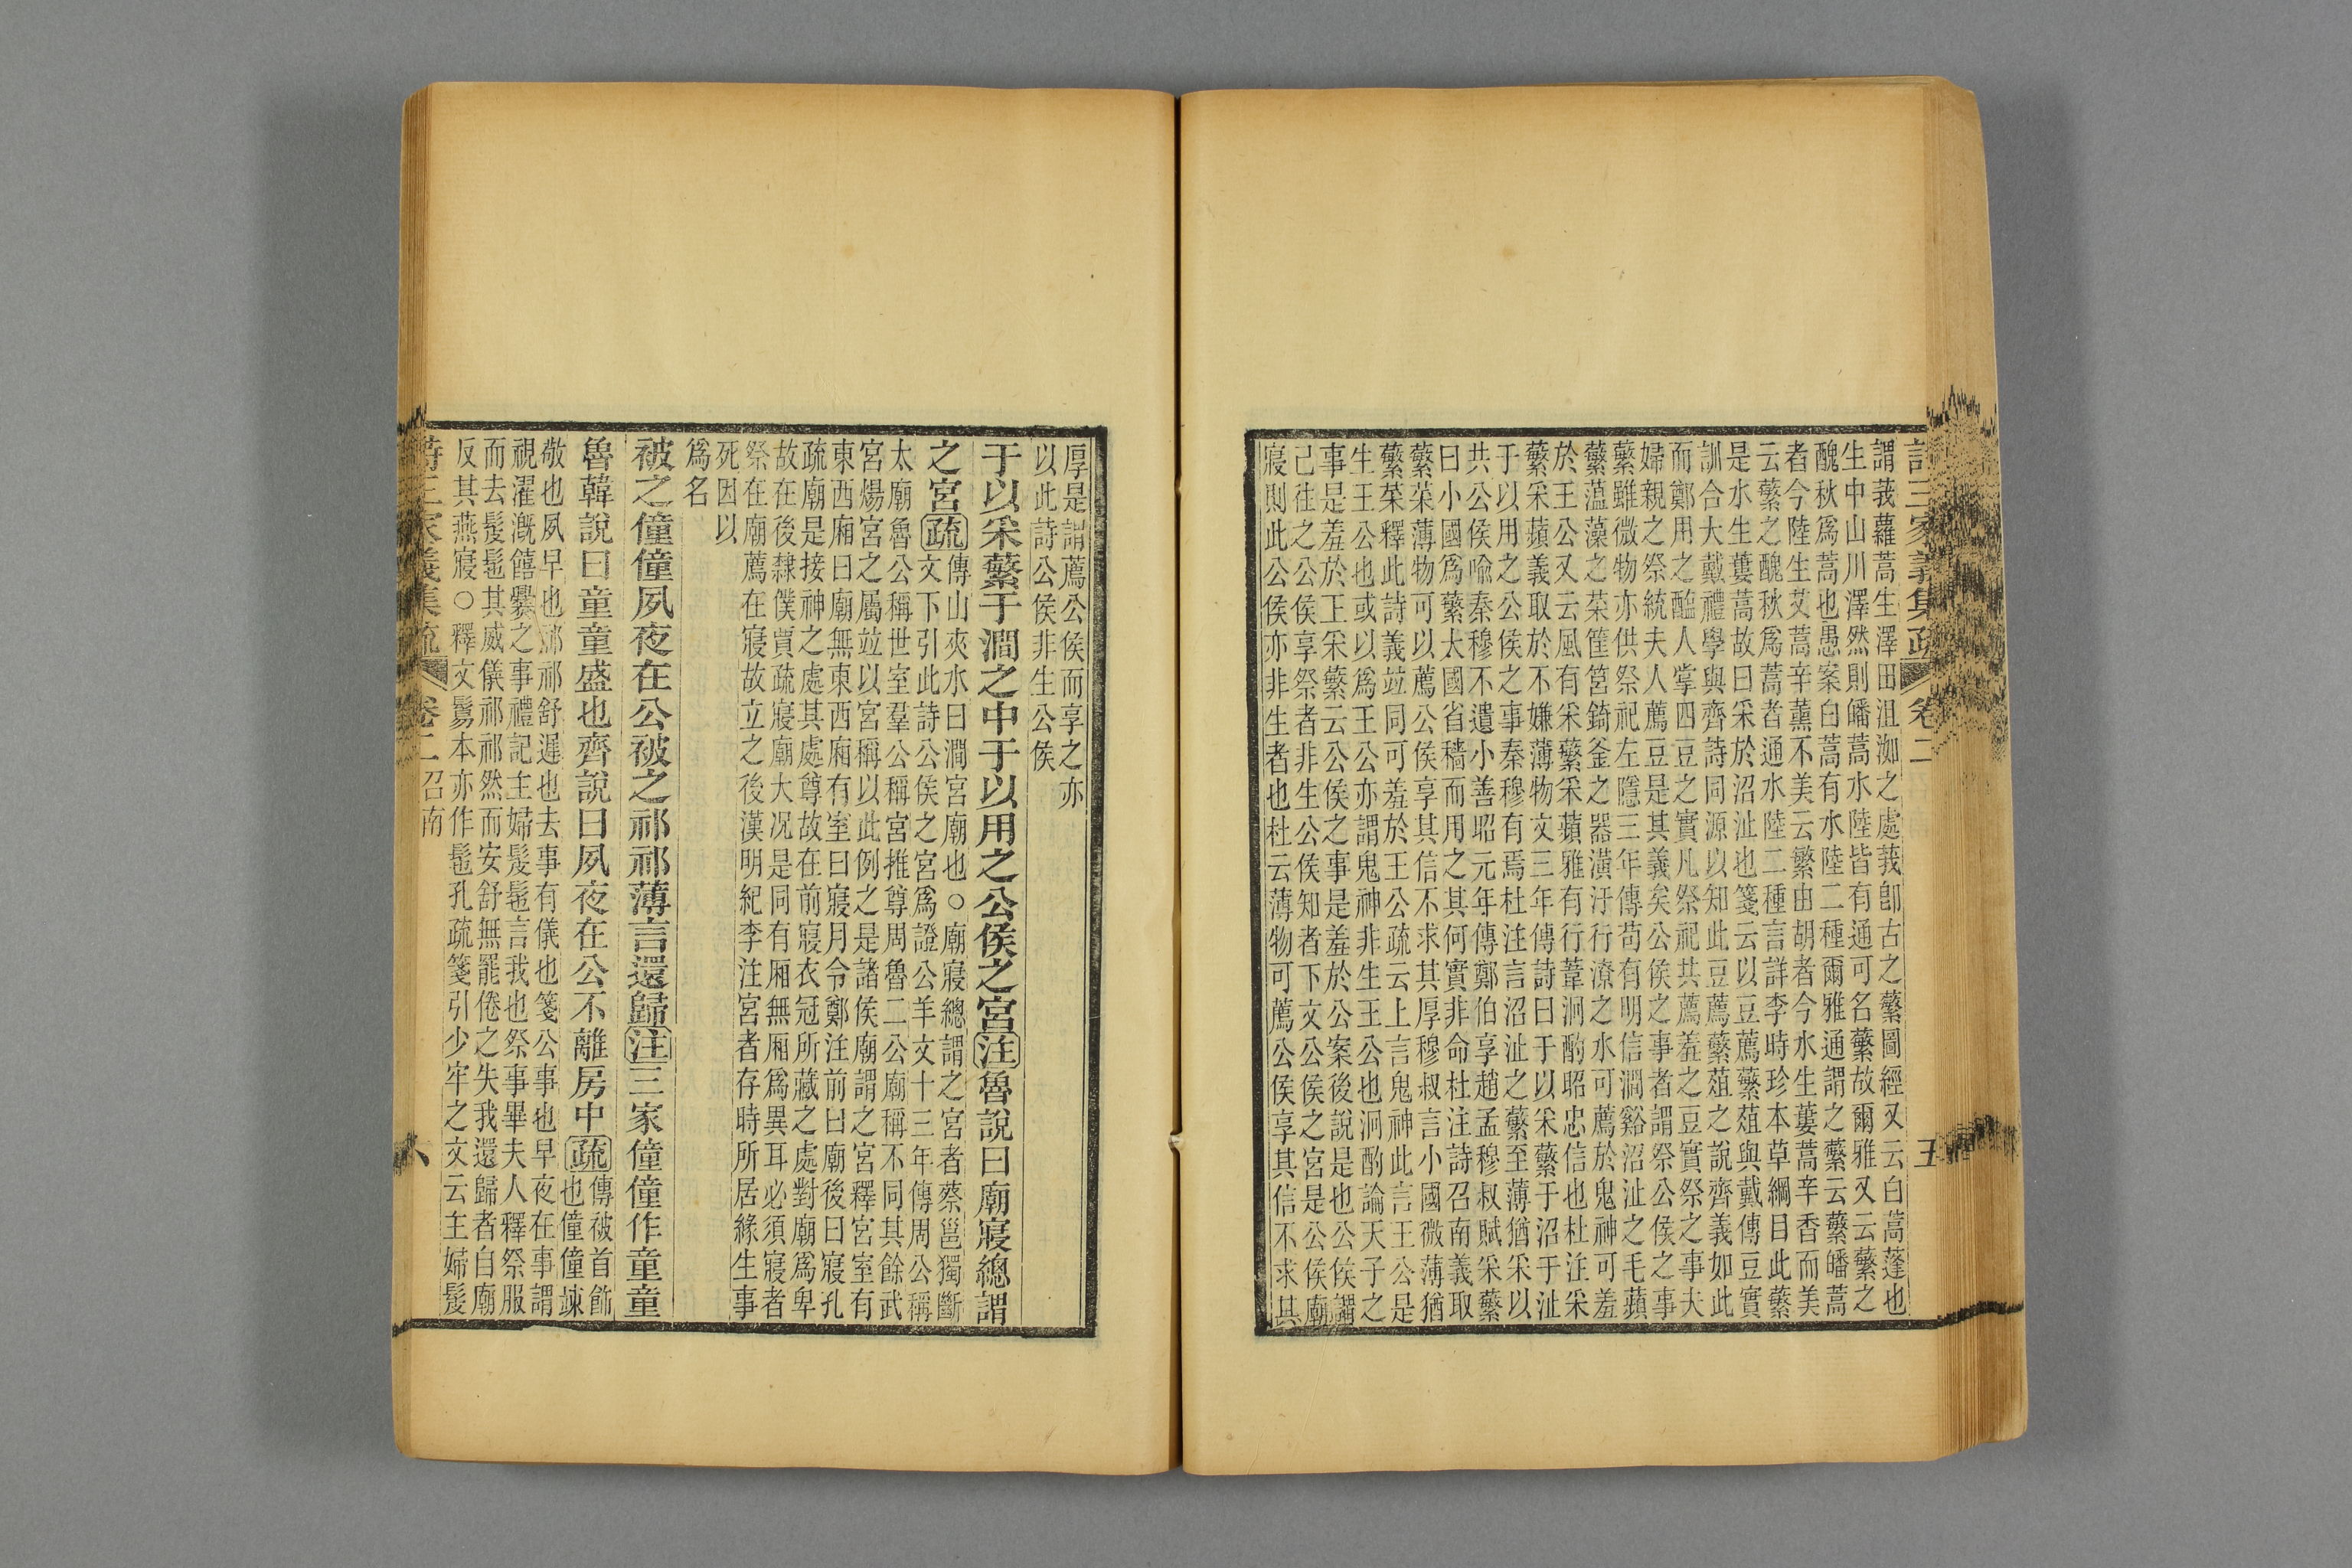 詩三家義集疏 卷二 五
謂莪蘿蒿生澤田沮洳之處莪卽古之蘩圖經又云白蒿蓬也
生中山川澤然則皤蒿水陸皆有通可名蘩故爾雅又云蘩之
醜秋爲蒿也愚案白蒿有水陸二種爾雅通謂之蘩云蘩皤蒿
者今陸生艾蒿辛薰不美云蘩由胡者今水生蔞蒿辛香而美
云蘩之醜秋爲蒿者通水陸二種言詳李時珍本草綱目此蘩
是水生蔞蒿故曰采於沼沚也箋云以豆薦蘩葅與戴傳豆實
訓合大戴禮學與齊詩同源以知此豆薦蘩葅之說齊義如此
而鄭用之醢人掌四豆之實凡祭祀共薦羞之豆實祭之事夫
婦親之祭統夫人薦豆是其義矣公侯之事者謂祭公侯之事
蘩雖微物亦供祭祀左隱三年傳苟有明信澗谿沼沚之毛蘋
蘩薀藻之菜筐筥錡釜之器潢汙行潦之水可薦於鬼神可羞
於王公又云風有采蘩采蘋雅有行葦泂酌昭忠信也杜注采
蘩采蘋義取於不嫌薄物文三年傳詩曰于以采蘩于沼于沚
于以用之公侯之事秦穆有焉杜注言沼沚之蘩至薄猶采以
共公侯喩秦穆不遺小善昭元年傳鄭伯享趙孟穆叔賦采蘩
曰小國爲蘩大國省穡而用之其何實非命杜注詩召南義取
蘩菜薄物可以薦公侯享其信不求其厚穆叔言小國微薄猶
蘩菜釋此詩義竝同可羞於王公疏云上言鬼神此言王公是
生王公也或以爲王公亦謂鬼神非生王公也泂酌論天子之
事是羞於王采蘩云公侯之事是羞於公案後說是也公侯謂
己往之公侯享祭者非生公侯知者下文公侯之宮是公侯廟
寢則此公侯亦非生者也杜云薄物可薦公侯享其信不求其
厚是謂薦公侯而享之亦
以此詩公侯非生公侯
于以采蘩于澗之中于以用之公侯之宮注魯說曰廟寢總謂
之宮疏
傳山夾水曰澗宮廟也○廟寢總謂之宮者蔡邕獨斷
文下引此詩公侯之宮爲證公羊文十三年傳周公稱
太廟魯公稱世室羣公稱宮推尊周魯二公廟稱不同其餘武
宮煬宮之屬竝以宮稱以此例之是諸侯廟謂之宮釋宮室有
東西廂曰廟無東西廂有室曰寢月令鄭注前曰廟後曰寢孔
疏廟是接神之處其處尊故在前寢衣冠所藏之處對廟爲卑
故在後隸僕賈疏寢廟大况是同有厢無厢爲異耳必須寢者
祭在廟薦在寢故立之後漢明紀李注宮者存時所居緣生事
死因以
爲名
被之僮僮夙夜在公被之祁祁薄言還歸注三家僮僮作童童
魯韓說曰童童盛也齊說曰夙夜在公不離房中疏
傳被首飾
也僮僮竦
敬也夙早也祁祁舒遲也去事有儀也箋公事也早夜在事謂
視濯漑饎爨之事禮記主婦髲髢言我也祭事畢夫人釋祭服
而去髲髢其威儀祁祁然而安舒無罷倦之失我還歸者自廟
反其燕寢○釋文鬄本亦作髢孔疏箋引少牢之文云主婦髲
詩三家義集疏 卷二 召南 六